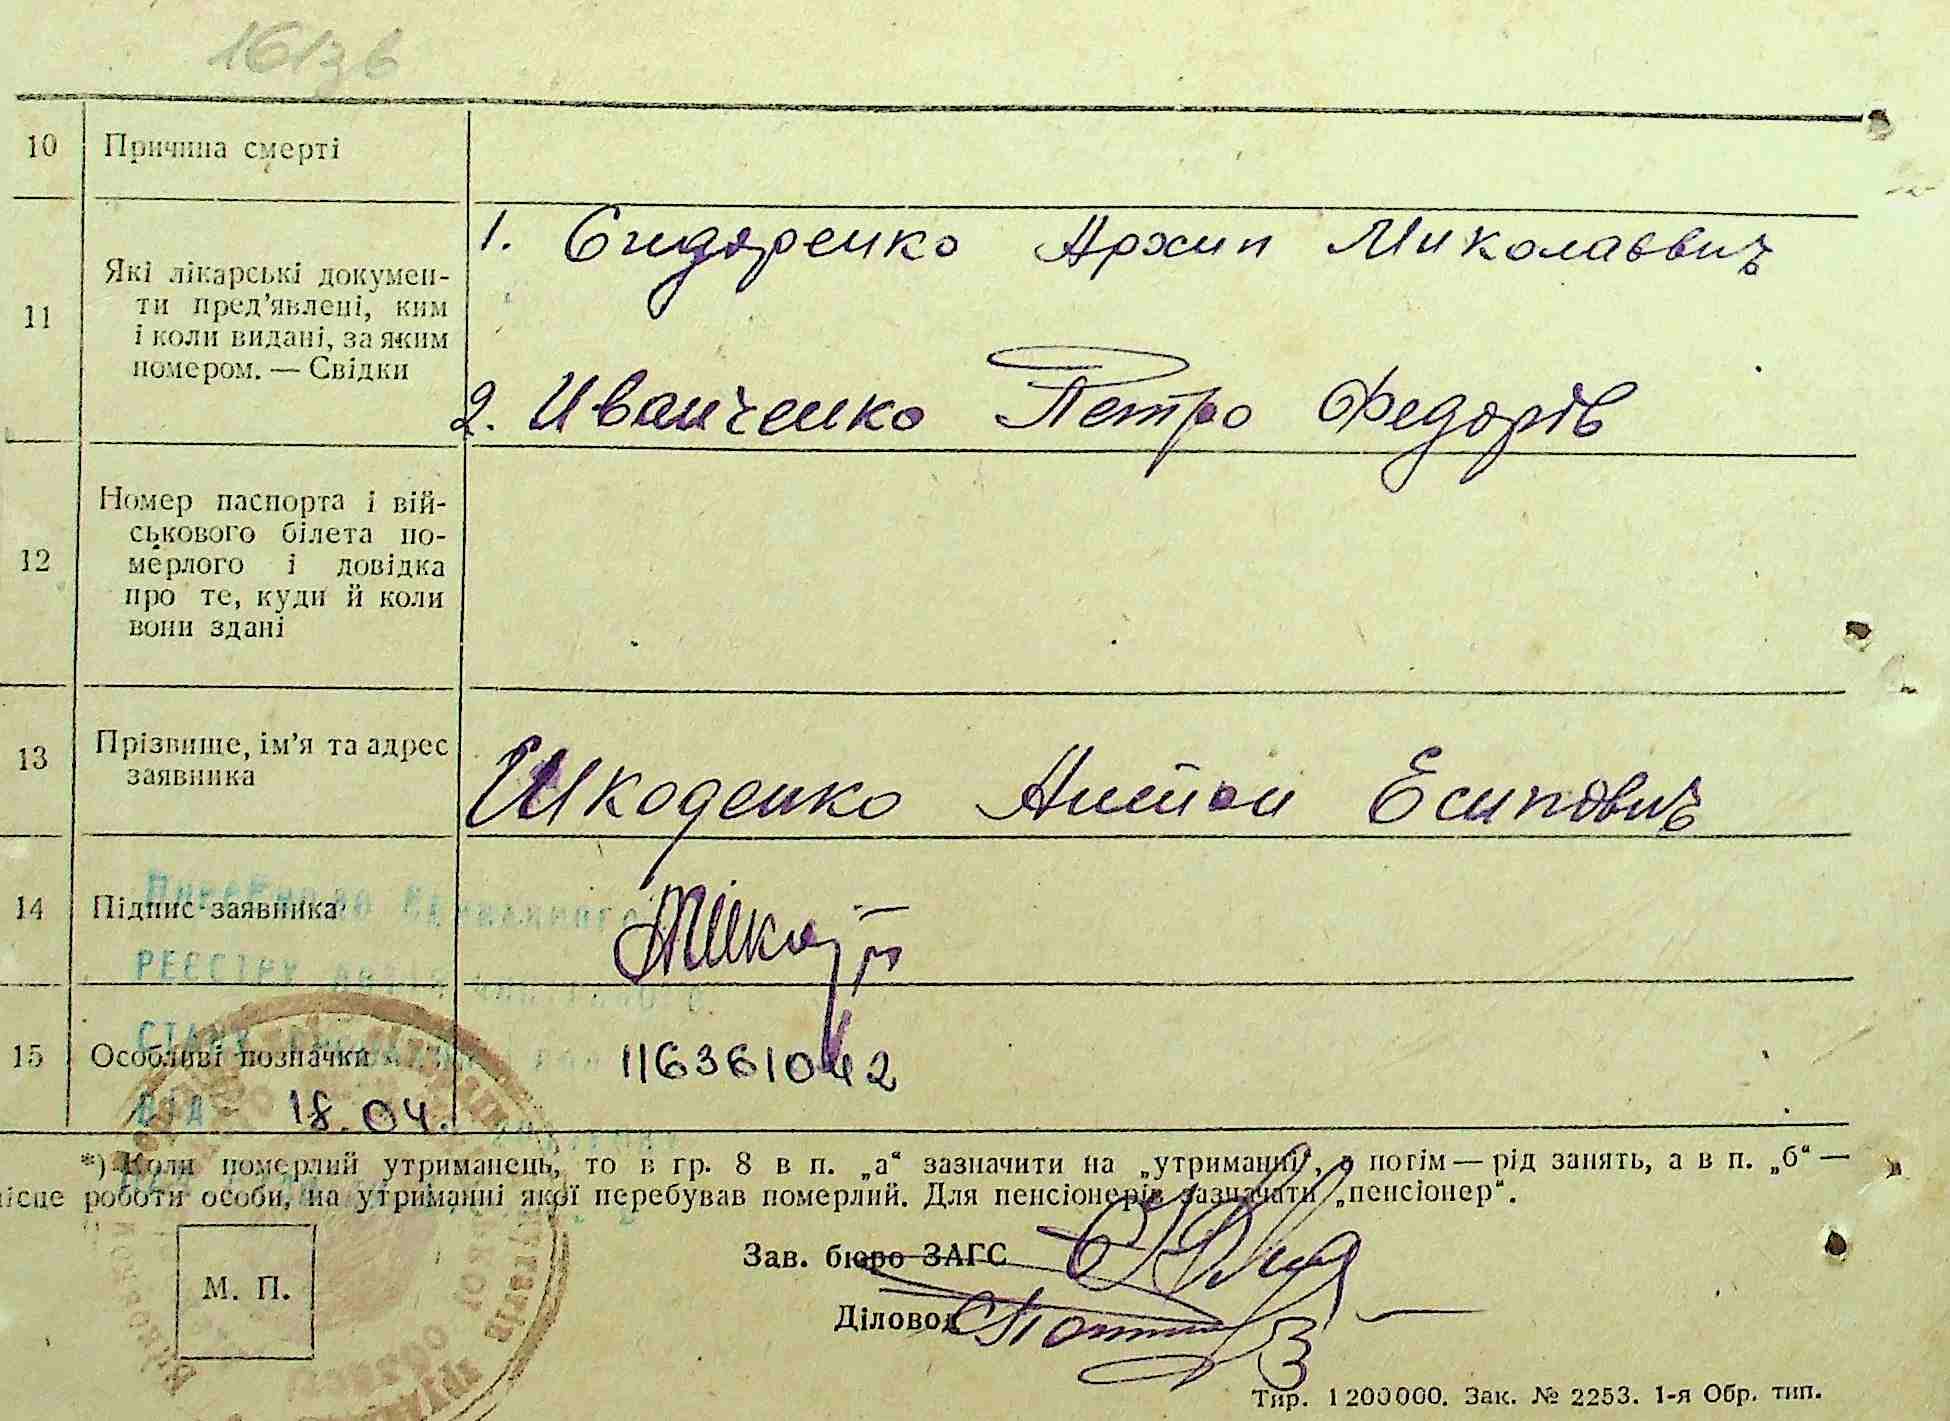 161зв
10 Причина смерті
11 Які лікарські докумен-
ти пред’явлені, ким
і коли видані, за яким
номером. — Свідки
1. Сидоренко Архип Миколаевич
2. Иванченко Петро Федорів
12 Номер паспорта і вій-
ськового білета по-
мерлого і довідка
про те, куди й коли
вони здані
13 Прізвище, ім’я та адрес
заявника
Шкоденко Антон Есипович
14 Підпис заявника
РЕЄСТРУ
15 Особливі позначки
116361042
18.04.
*) Коли померлий утриманець, то в гр. 8 в п. „а“ зазначити на „утриманні“, а потім — рід занять, а в п. „б“ —
місце роботи особи, на утриманні якої перебував померлий. Для пенсіонерів зазначати „пенсіонер“.
М. П.
Зав. бюро ЗАГС
Діловод
Тир. 1200000. Зак. № 2253. 1-я Обр. тип.